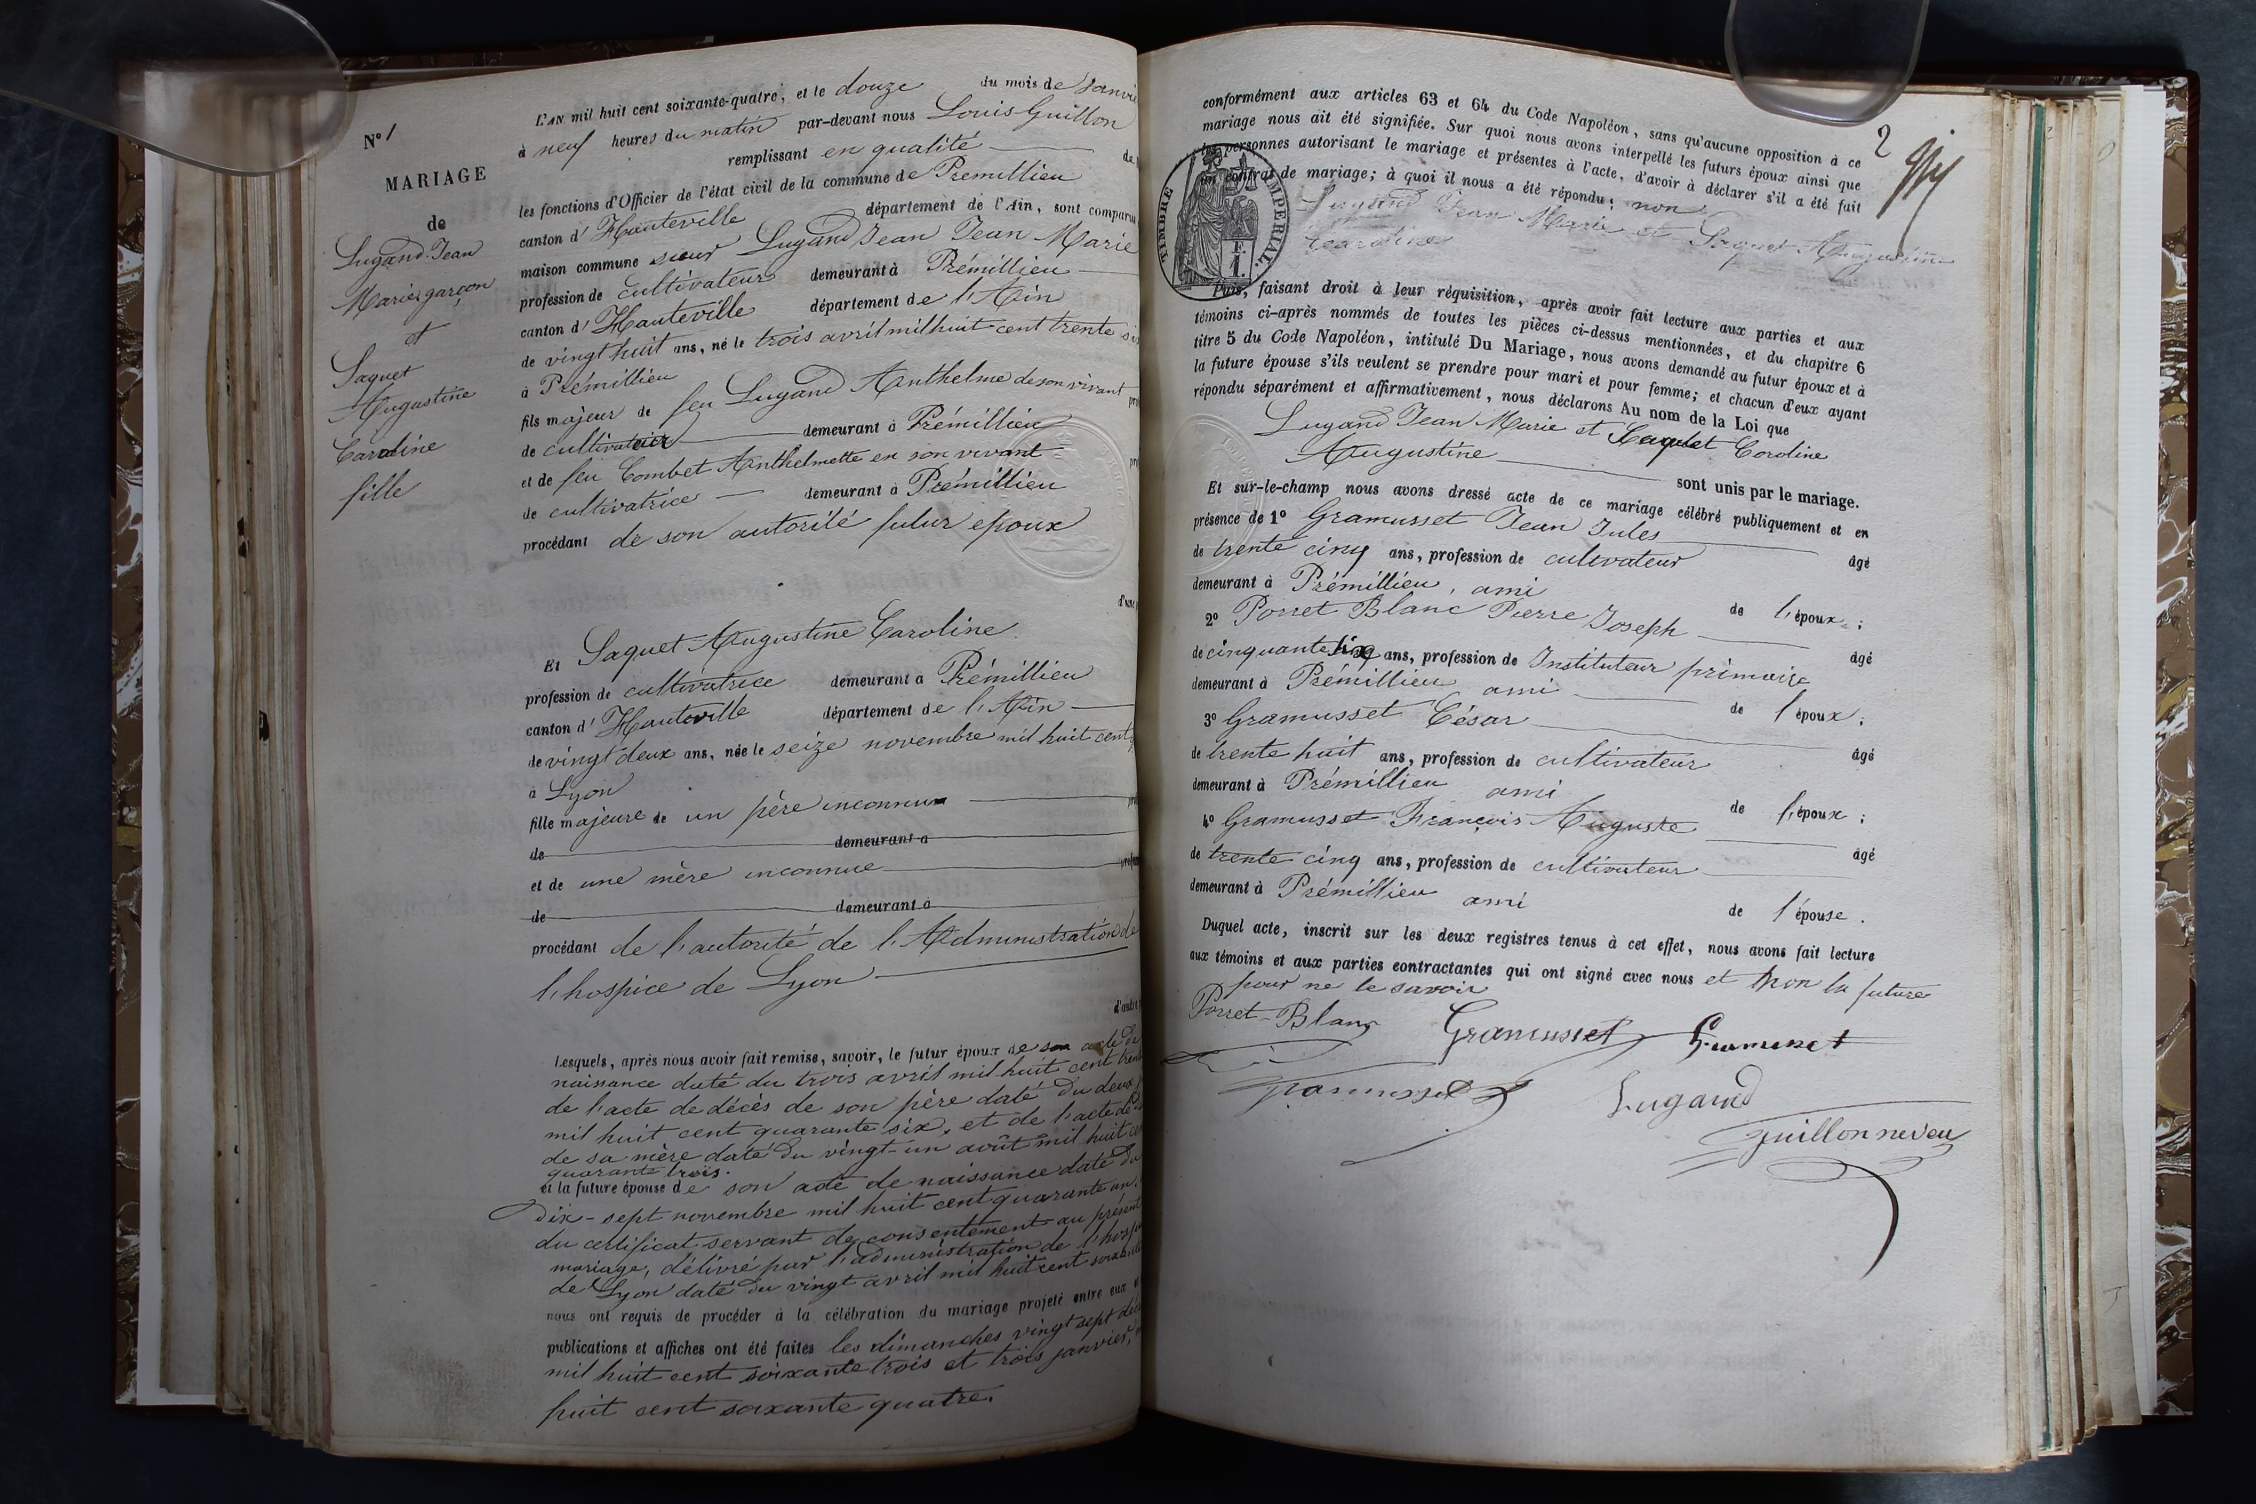 N° 1
MARIAGE
de
Lugand Jean
Marie, garçon
et
Saquet
Augustine
Caroline
fille
L'AN mil huit cent soixante-quatre, et le douze du mois de Janvie
à neuf heures du matin par-devant nous Louis Guillon
remplissant en qualité de
les fonctions d'Officier de l'état civil de la commune de Prémillieu
canton d'Hauteville département de l'Ain, sont comparu
maison commune sieur Lugand Jean Jean Marie
profession de cultivateur demeurant à Prémillieu
canton d'Hauteville département de l'Ain
de vingt huit ans, né le trois avril mil huit cent trente si
à Prémillieu
fils majeur de feu Lugand Anthelme de son vivant pro
de cultivateur demeurant à Prémillieu
et de feu Combet Anthelmette en son vivant pro
de cultivatrice demeurant à Prémillieu
procédant de son autorité futur époux
d'une p
Et Saquet Augustine Caroline
profession de cultivatrice demeurant à Prémillieu
canton d'Hauteville département de l'Ain
de vingt deux ans, née le seize novembre mil huit cent
à Lyon
fille majeure de un père inconnu
de demeurant à
et de une mère inconnue profes
de demeurant à
procédant de l'autorité de l'Administration de
l'hospice de Lyon
d'autre p
Lesquels, après nous avoir fait remise, savoir, le futur époux de son acte de
naissance daté du trois avril mil huit cent trent
de l'acte de décès de son père daté du deux
mil huit cent quarante six, et de l'acte de
de sa mère daté du vingt-un août mil huit ce
quarante trois.
et la future épouse de son acte de naissance daté du
dix-sept novembre mil huit cent quarante un,
du certificat servant de consentement au présent
mariage, délivré par l'administration de l'hosp
de Lyon daté du vingt avril mil huit cent soixante
nous ont requis de procéder à la célébration du mariage projeté entre eux
publications et affiches ont été faites les dimanches vingt sept déc
mil huit cent soixante trois et trois janvier,
huit cent soixante quatre.
2
conformément aux articles 63 et 64 du Code Napoléon, sans qu'aucune opposition à ce
mariage nous ait été signifiée. Sur quoi nous avons interpellé les futurs époux ainsi que
les personnes autorisant le mariage et présentes à l'acte, d'avoir à déclarer s'il a été fait
un contrat de mariage; à quoi il nous a été répondu: non
TIMBRE IMPERIAL.
F.
1.
Lugand Jean Marie et Saquet Augustine
Caroline
Puis, faisant droit à leur réquisition, après avoir fait lecture aux parties et aux
témoins ci-après nommés de toutes les pièces ci-dessus mentionnées, et du chapitre 6
titre 5 du Code Napoléon, intitulé Du Mariage, nous avons demandé au futur époux et à
la future épouse s'ils veulent se prendre pour mari et pour femme; et chacun d'eux ayant
répondu séparément et affirmativement, nous déclarons Au nom de la Loi que
Lugand Jean Marie et Saquet Caroline
Augustine sont unis par le mariage.
Et sur-le-champ nous avons dressé acte de ce mariage célébré publiquement et en
présence de 1° Gramusset Jean Jules âgé
de trente cinq ans, profession de cultivateur
demeurant à Prémillieu, ami de l'époux;
2° Porret Blanc Pierre Joseph âgé
de cinquante six ans, profession de Instituteur primaire
demeurant à Prémillieu ami de l'époux;
3° Gramusset César âgé
de trente huit ans, profession de cultivateur
demeurant à Prémillieu ami de l'époux;
4° Gramusset François Auguste âgé
de trente cinq ans, profession de cultivateur
demeurant à Prémillieu ami de l'épouse.
Duquel acte, inscrit sur les deux registres tenus à cet effet, nous avons fait lecture
aux témoins et aux parties contractantes qui ont signé avec nous et non la future
pour ne le savoir
Porret-Blanc Gramusset Gramusset
Gramusset Lugand
Guillon neveu